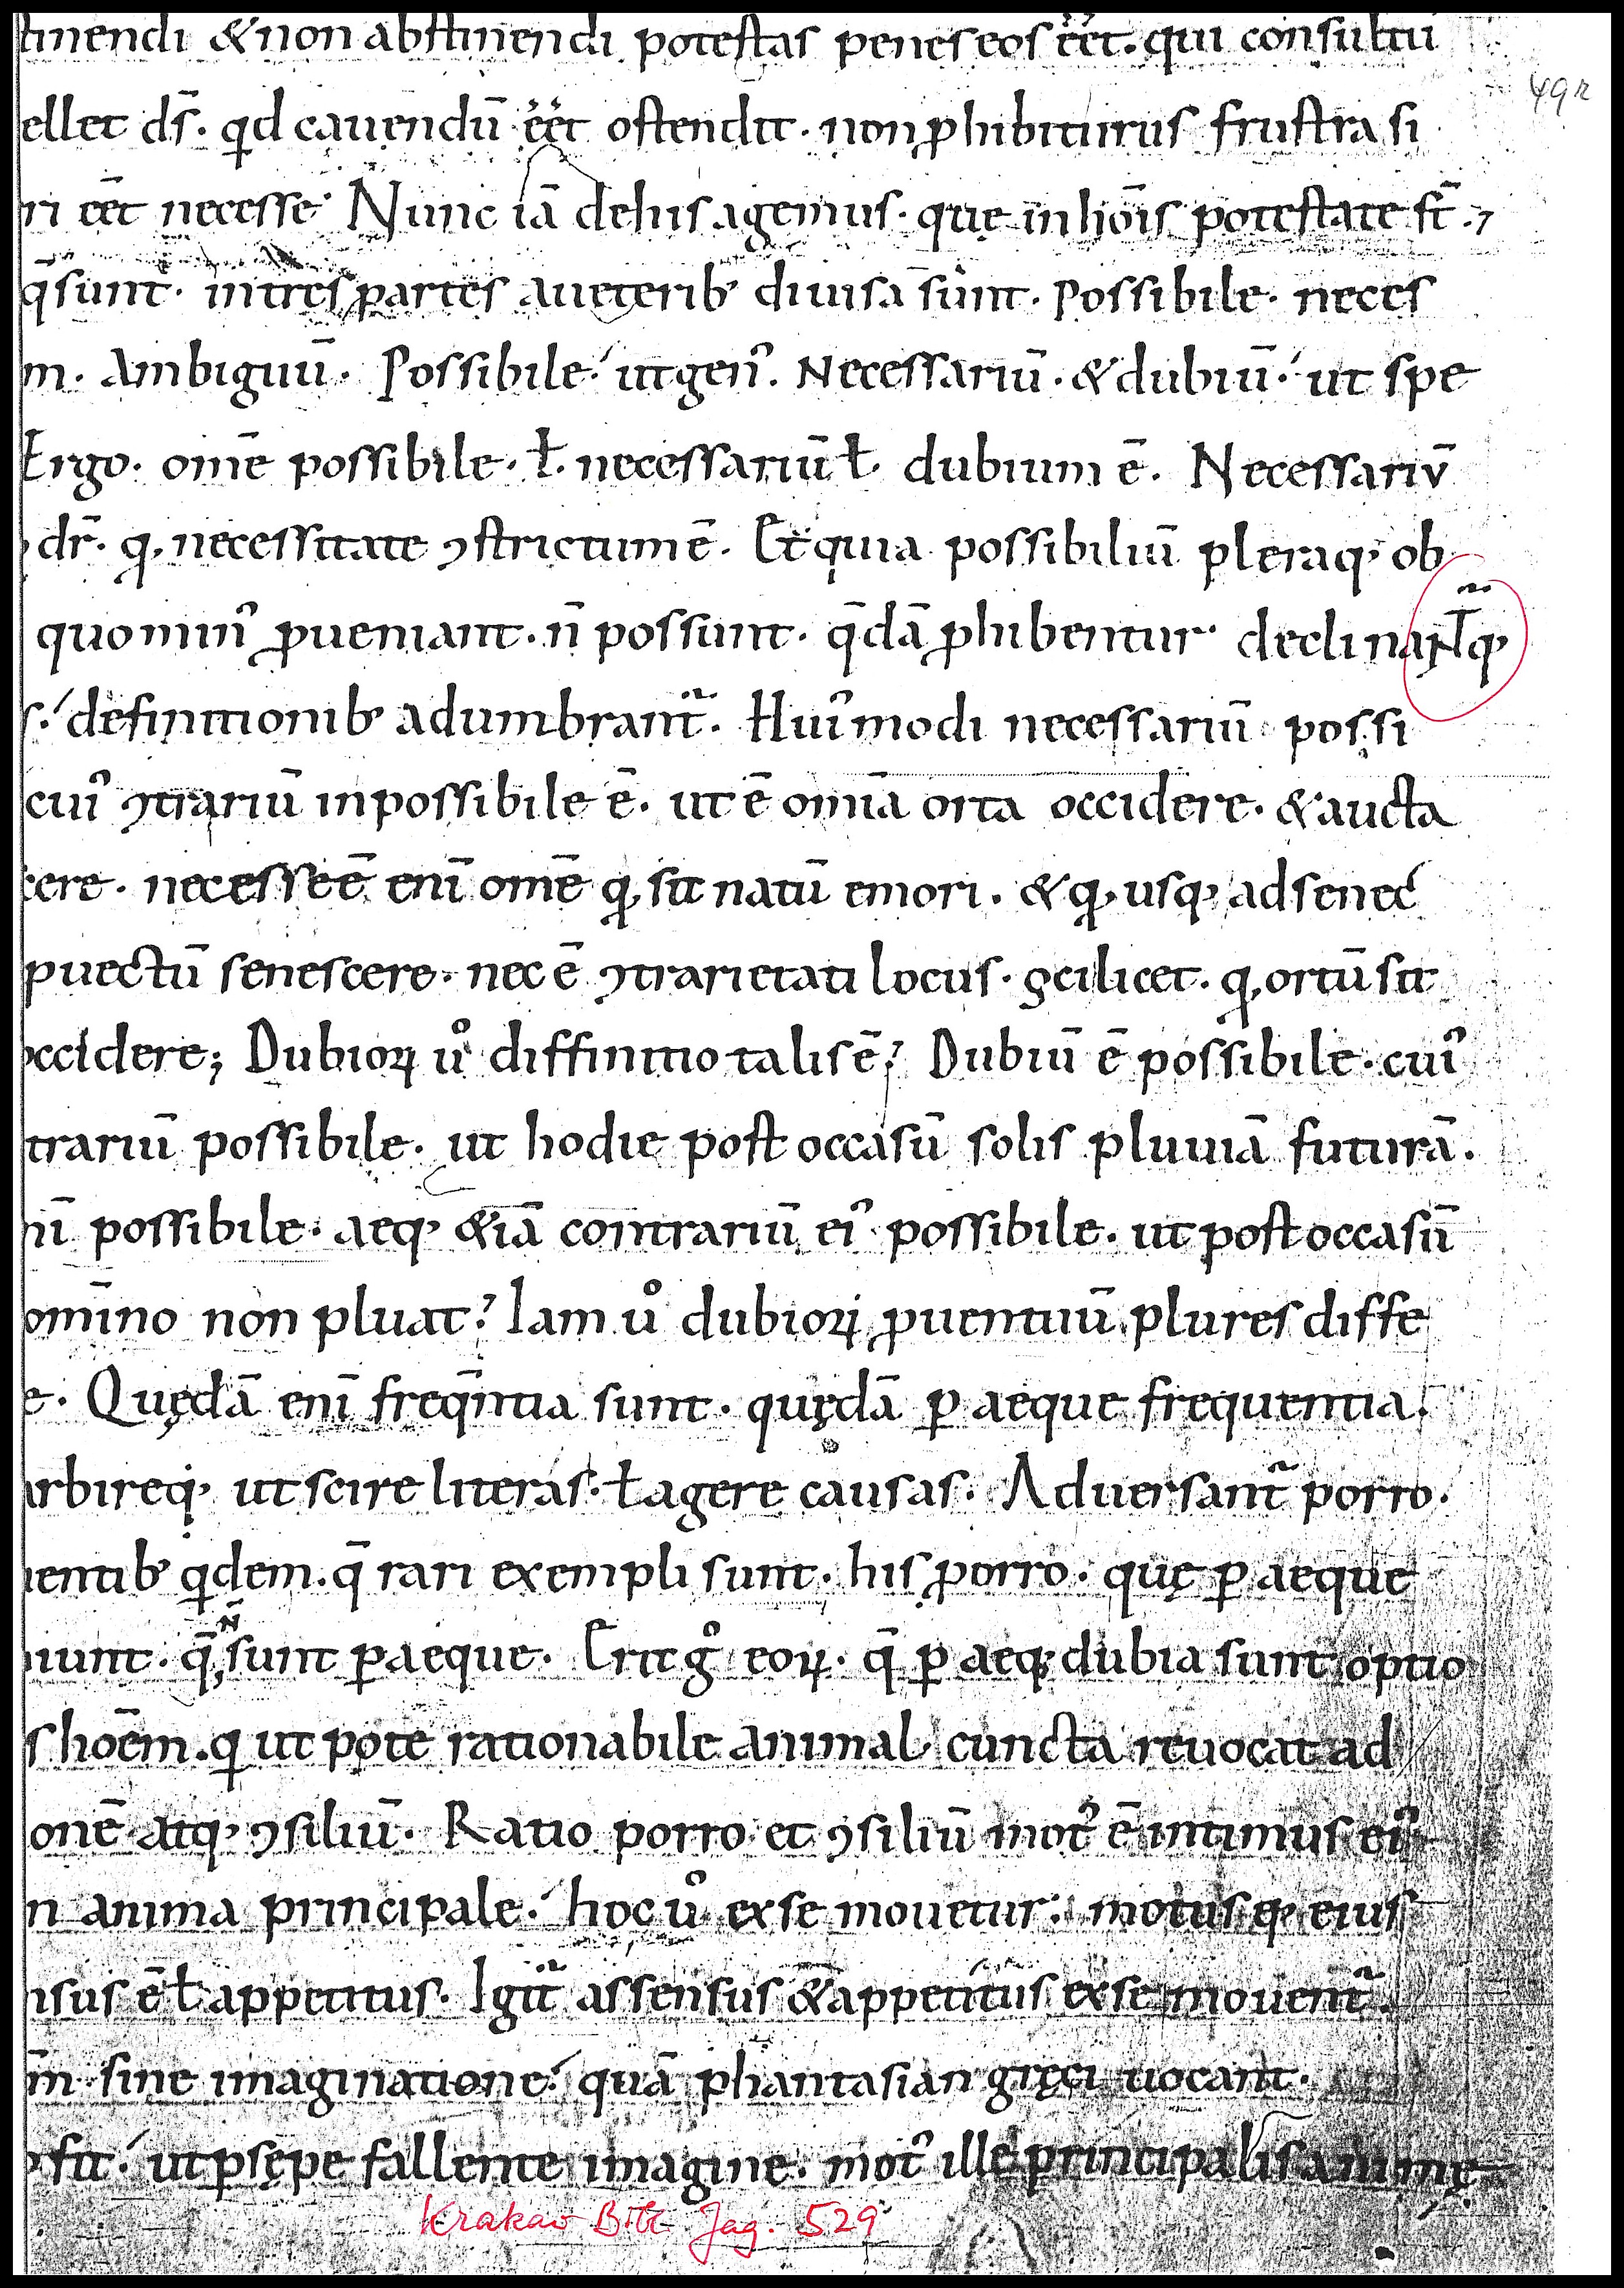 tinendi & non abstinendi potestas penes eos eēt. qui consultū
49r
ellet dr̄. qd cauendū eēt ostendit. non ꝓhibiturus frustra si
ri eēt necesse Nunc iā de his agemus. quę in hoīs potestate st̄. ⁊
q̄ sunt. in tres partes a ueterib; diuisa sunt. Possibile. neces
m. Ambiguū. Possibile. ut genꝰ. Necessariū. & dubiū. ut spe
Ergo. omē possibile. ł. necessariū ł. dubium ē. Necessariū
dr̄. qđ necessitate ꝯstrictum ē. Et quia possibiliū pleraq; ob
quominꝰ ꝓueniant. n̄ possunt. q̄dā ꝓhibentur. declinant̄q;
s. definitionib; adumbrant᷑. Huiꝰmodi necessariū possi
cuiꝰ ꝯtrariū inpossibile ē. ut ē omīa orta occidere. & aucta
cere. necesse ē enī omē qđ sit natū emori. & qđ usq; ad senec̄
ꝓuectū senescere. nec ē ꝯtrarietati locus. scilicet. qđ ortū sit
occidere; Dubioꝝ uͦ diffinitio talis ē; Dubiū ē possibile. cuiꝰ
trariū possibile. ut hodie post occasū solis pluuiā futurā.
nī possibile. aeq; &iā contrariū eiꝰ possibile. ut post occasū
omīno non pluat? Iam uͦ dubioꝝ ꝓuentuū plures diffe
e. Quędā enī freq̄ntia sunt. quędā ꝑ aeque frequentia.
arbireq; ut scire literas. ł agere causas. Aduersant᷑ porro.
uentib; qdem. q̄ rari exempli sunt. his porro. quę ꝑ aeque
niunt. q̄ n̄ sunt ꝑ aeque. Erit gͦ eoꝝ. q̄ ꝑ aeq; dubia sunt optio
s hoēm. q ut pote rationabile animal cuncta reuocat ad
onē atq; ꝯsiliū. Ratio porro et ꝯsiliū motꝰ ē intimus eiꝰ
n anima principale. hoc uͦ ex se mouetur. motusq; eius
nsus ē ł appetitus. Igit᷑ assensus & appetitus ex se mouent᷑.
m̄ sine imaginatione. quā phantasian gręci uocant.
fit. ut ꝑsępe fallente imagine. motꝰ ille principalis animę
Krakau Bibl. Jag. 529